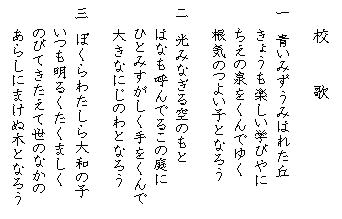 校歌
一 青いみずうみはれた丘
きょうも楽しい学びやに
ちえの泉をくんでゆく
根気のつよい子となろう
二 光みなぎる空のもと
はなも呼んでるこの庭に
ひとみすがしく手をくんで
大きなにじのわとなろう
三 ぼくらわたしら大和の子
いつも明るくたくましく
のびてきたえて世のなかの
あらしにまけぬ木となろう